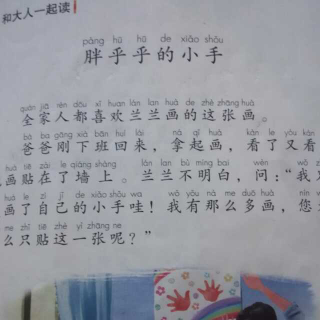 和大人一起读
pàng hū hū de xiǎo shǒu
胖乎乎的小手
quán jiā rén dōu xǐ huan lán lan huà de zhè zhāng huà
全家人都喜欢兰兰画的这张画。
bà ba gāng xià bān huí lái ná qǐ huà kàn le yòu kàn
爸爸刚下班回来,拿起画,看了又看
huà tiē zài le qiáng shàng lán lan bù míng bai wèn wǒ
画贴在了墙上。兰兰不明白,问:“我
huà le zì jǐ de xiǎo shǒu wa wǒ yǒu nà me duō huà nín
画了自己的小手哇!我有那么多画,您
me zhǐ tiē zhè yì zhāng ne
么只贴这一张呢?”